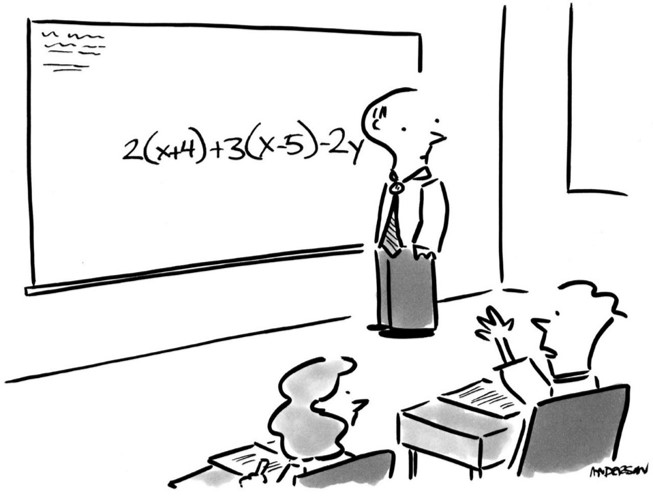 2(x+4)+3(x-5)-2y
ANDERSON